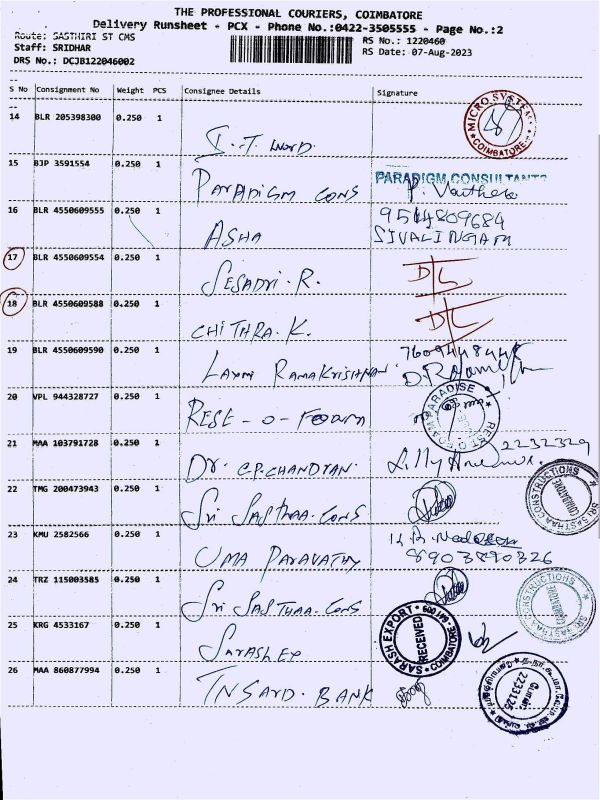 THE PROFESSIONAL COURIERS, COIMBATORE
Delivery Runsheet - PCX - Phone No.:0422-3505555 - Page No.:2
Route: SASTHIRI ST CMS
RS No.: 1220460
Staff: SRIDHAR
RS Date: 07-Aug-2023
DRS No.: DCJB122046002
S No Consignment No Weight PCS Consignee Details Signature
14 BLR 205398300 0.250 1 I.T. Word MICRO SYSTEMS COIMBATORE
15 BJP 3591554 0.250 1 PARADIGM CONS PARADIGM CONSULTANTS
16 BLR 4550609555 0.250 1 ASHA 9514809684
SIVALINGAM
17 BLR 4550609554 0.250 1 SESADRI. R. D/L
18 BLR 4550609588 0.250 1 CHITHRA. K. D/L
19 BLR 4550609590 0.250 1 LAXMI RAMAKRISHNAN
20 VPL 944328727 0.250 1 REST-O-FOAM REST O FOAM PARADISE
21 MAA 103791728 0.250 1 DR. C.P. CHANDRAN. Lilly 2232329
22 TMG 200473943 0.250 1 SRI SASTHAA. CONS SRI SASTHAA CONSTRUCTIONS COIMBATORE
23 KMU 2582566 0.250 1 UMA PARAVATHY 8903890326
24 TRZ 115003585 0.250 1 SRI SASTHAA. CONS SRI SASTHAA CONSTRUCTIONS COIMBATORE
25 KRG 4533167 0.250 1 SARASH EX SARASH EXPORT RECEIVED COIMBATORE - 641 009
26 MAA 860877994 0.250 1 TNSARD. BANK 2233125